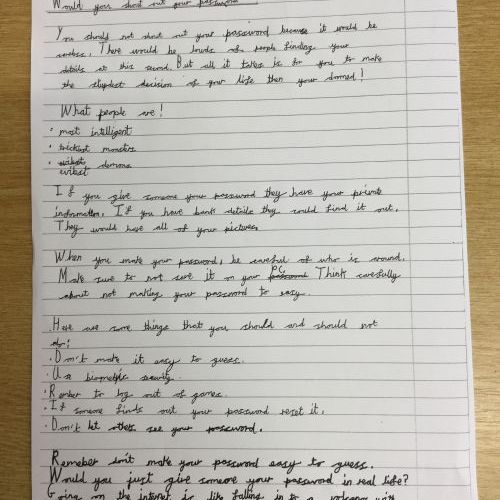 Would you shout out your password
You should not shout out your password because it would be
useless. There would be loads of people finding your
details at this second. But all it takes is for you to make
the stupidest decision of your life then your domed!
What people are!
• most intelligent
• trickest monsters
• evilest demons
If you give someone your password they have your private
information. If you have bank details they could find it out.
They would have all of your pictures.
When you make your password, be careful of who is around.
Make sure to not save it on your PC Think carefully
about not making your password to easy.
Here are some things that you should and should not
do:
• Don't make it easy to guess.
• Use biometric security.
• Rember to log out of games.
• If someone finds out your password reset it.
• Don't let others see your password.
Remeber don't make your password easy to guess.
Would you just give someone your password in real life?
Going on the internet is like falling in to a volcano with